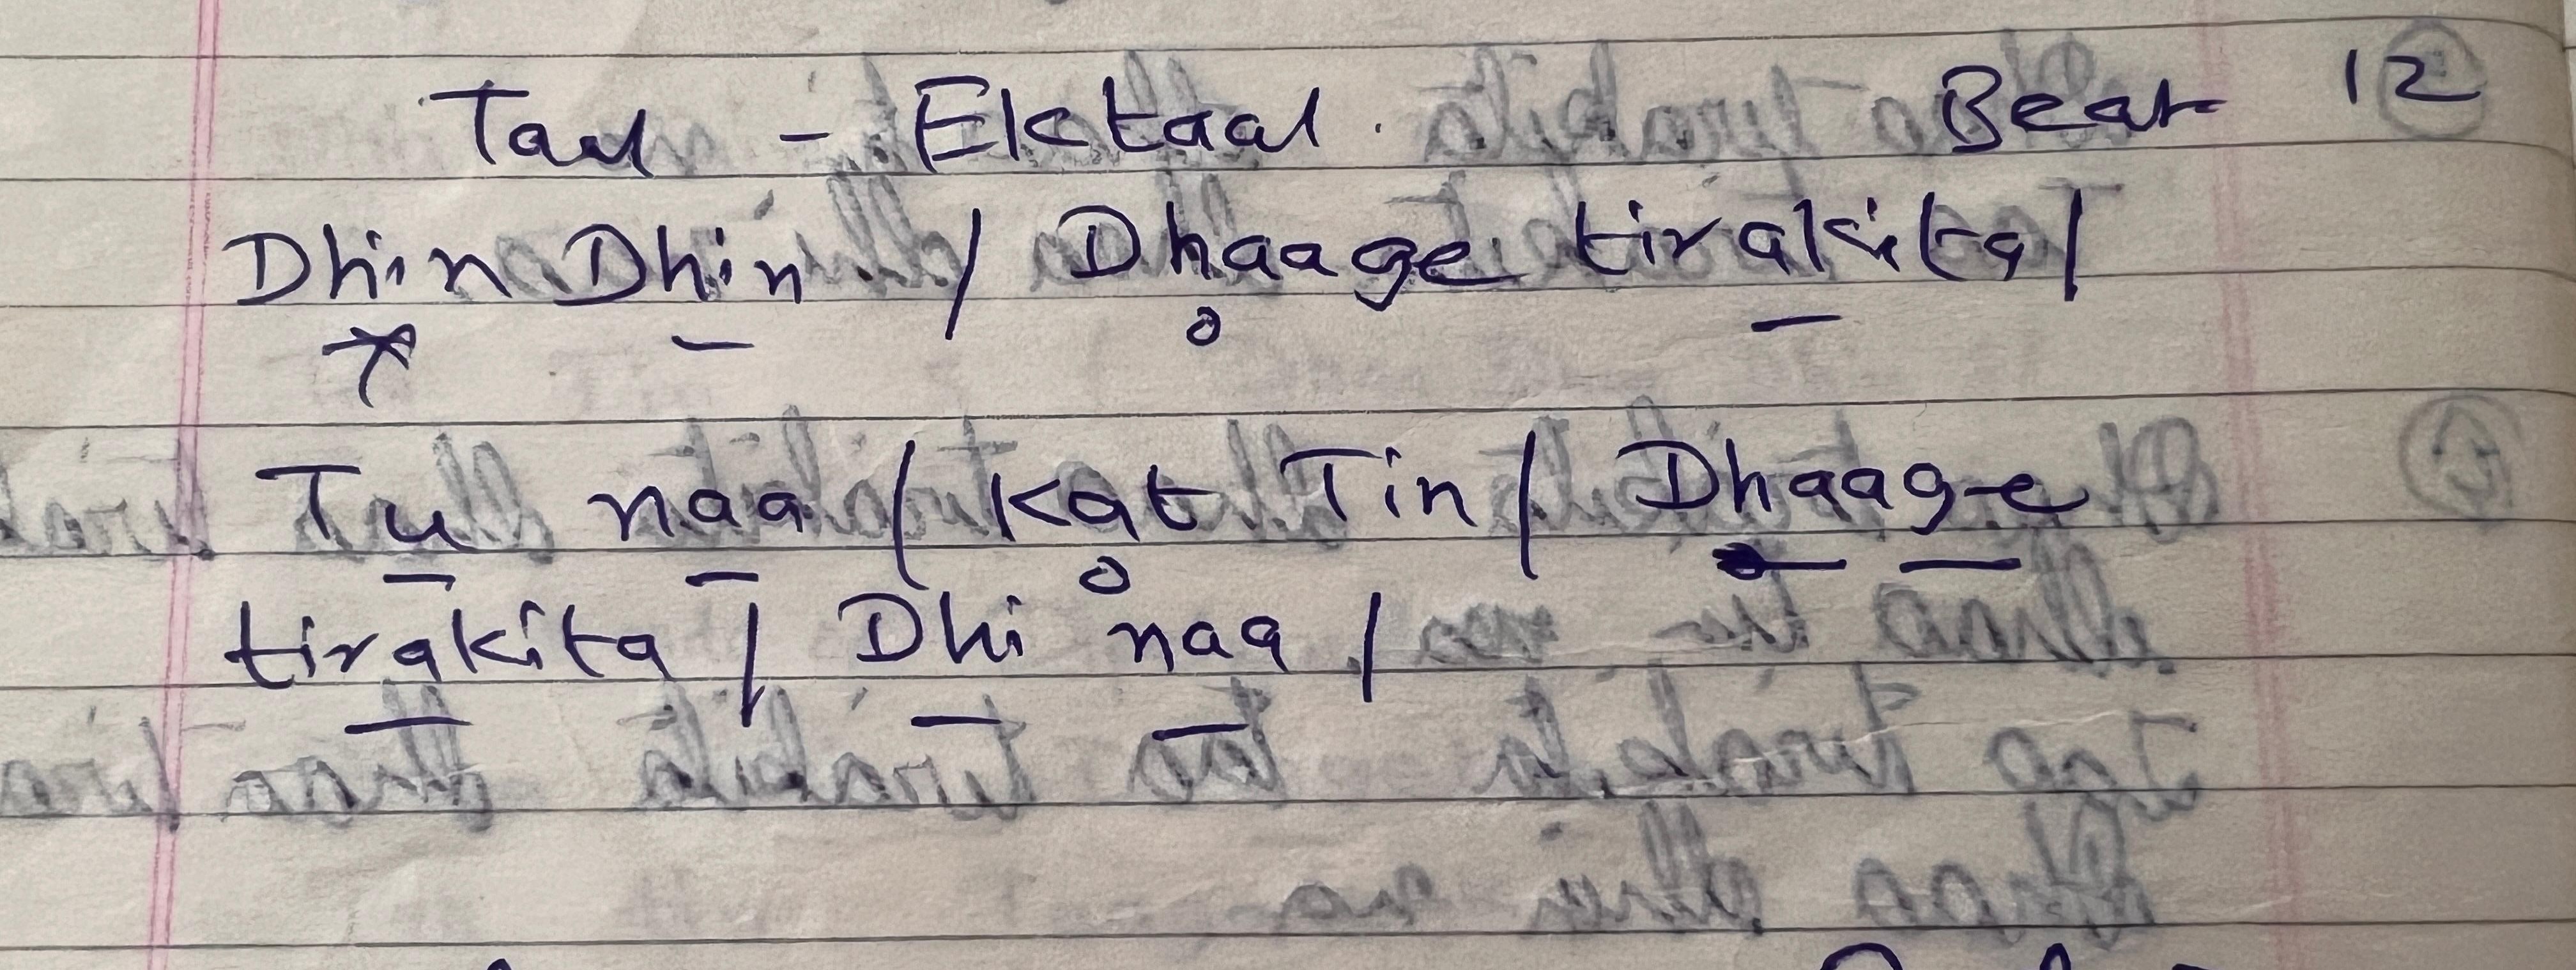 Taal - Ektaal. Beat 12
Dhin Dhin / Dhaage tirakita /
Tu naa / Kat Tin / Dhaage
tirakita / Dhi naa /